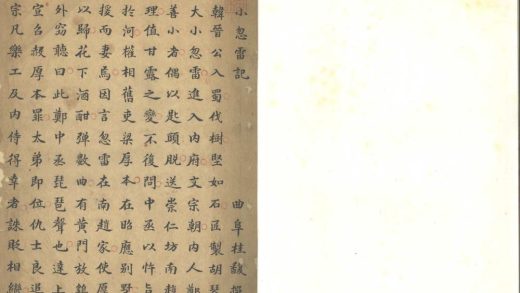 小忽雷記　曲阜桂馥撰
韓晉公入蜀伐樹堅如石匠製胡琴
大小忽雷進入內府文宗朝內人鄭
善小者偶以匙頭脫送崇仁坊南趙
理值甘露之變不復問中丞以忤旨
於河權相舊吏梁厚本在昭應別墅
而妻焉因言忽雷在南趙家使厚
以歸花下酒酣彈數曲有黃門放鷂
外竊聽曰此鄭中丞琵琶聲也達上
宣召赦厚本罪太弟即位仇士良追
宗凡樂工及內侍得幸者誅貶相繼